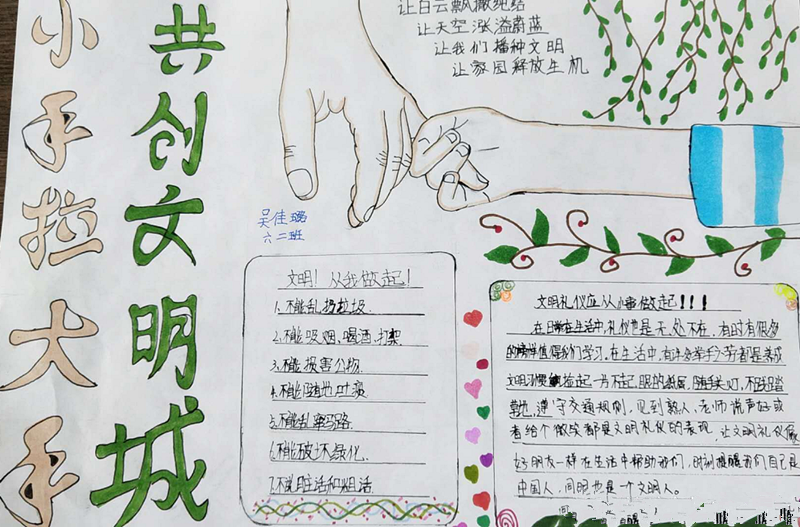 小手拉大手
共创文明城
让白云飘撒纯洁
让天空涨溢蔚蓝
让我们播种文明
让家园释放生机
吴佳璐
六二班
文明！从我做起！
1.不能乱扔垃圾.
2.不能吸烟、喝酒、打架.
3.不能损害公物.
4.不能随地吐痰
5.不能乱穿马路.
6.不能破坏绿化.
7.不说脏话和粗话.
文明礼仪应从小事做起！！！
在日常生活中,礼仪也是无处不在,有时有很多
的榜样值得我们学习,在生活中,有许多举手之劳都是养成
文明习惯
草地,遵守交通规则,见到熟人、老师说声好或
者给个微笑都是文明礼仪的表现,让文明礼仪像
好朋友一样在生活中帮助我们,时刻提醒我们自己是
中国人,同时也是一个文明人。